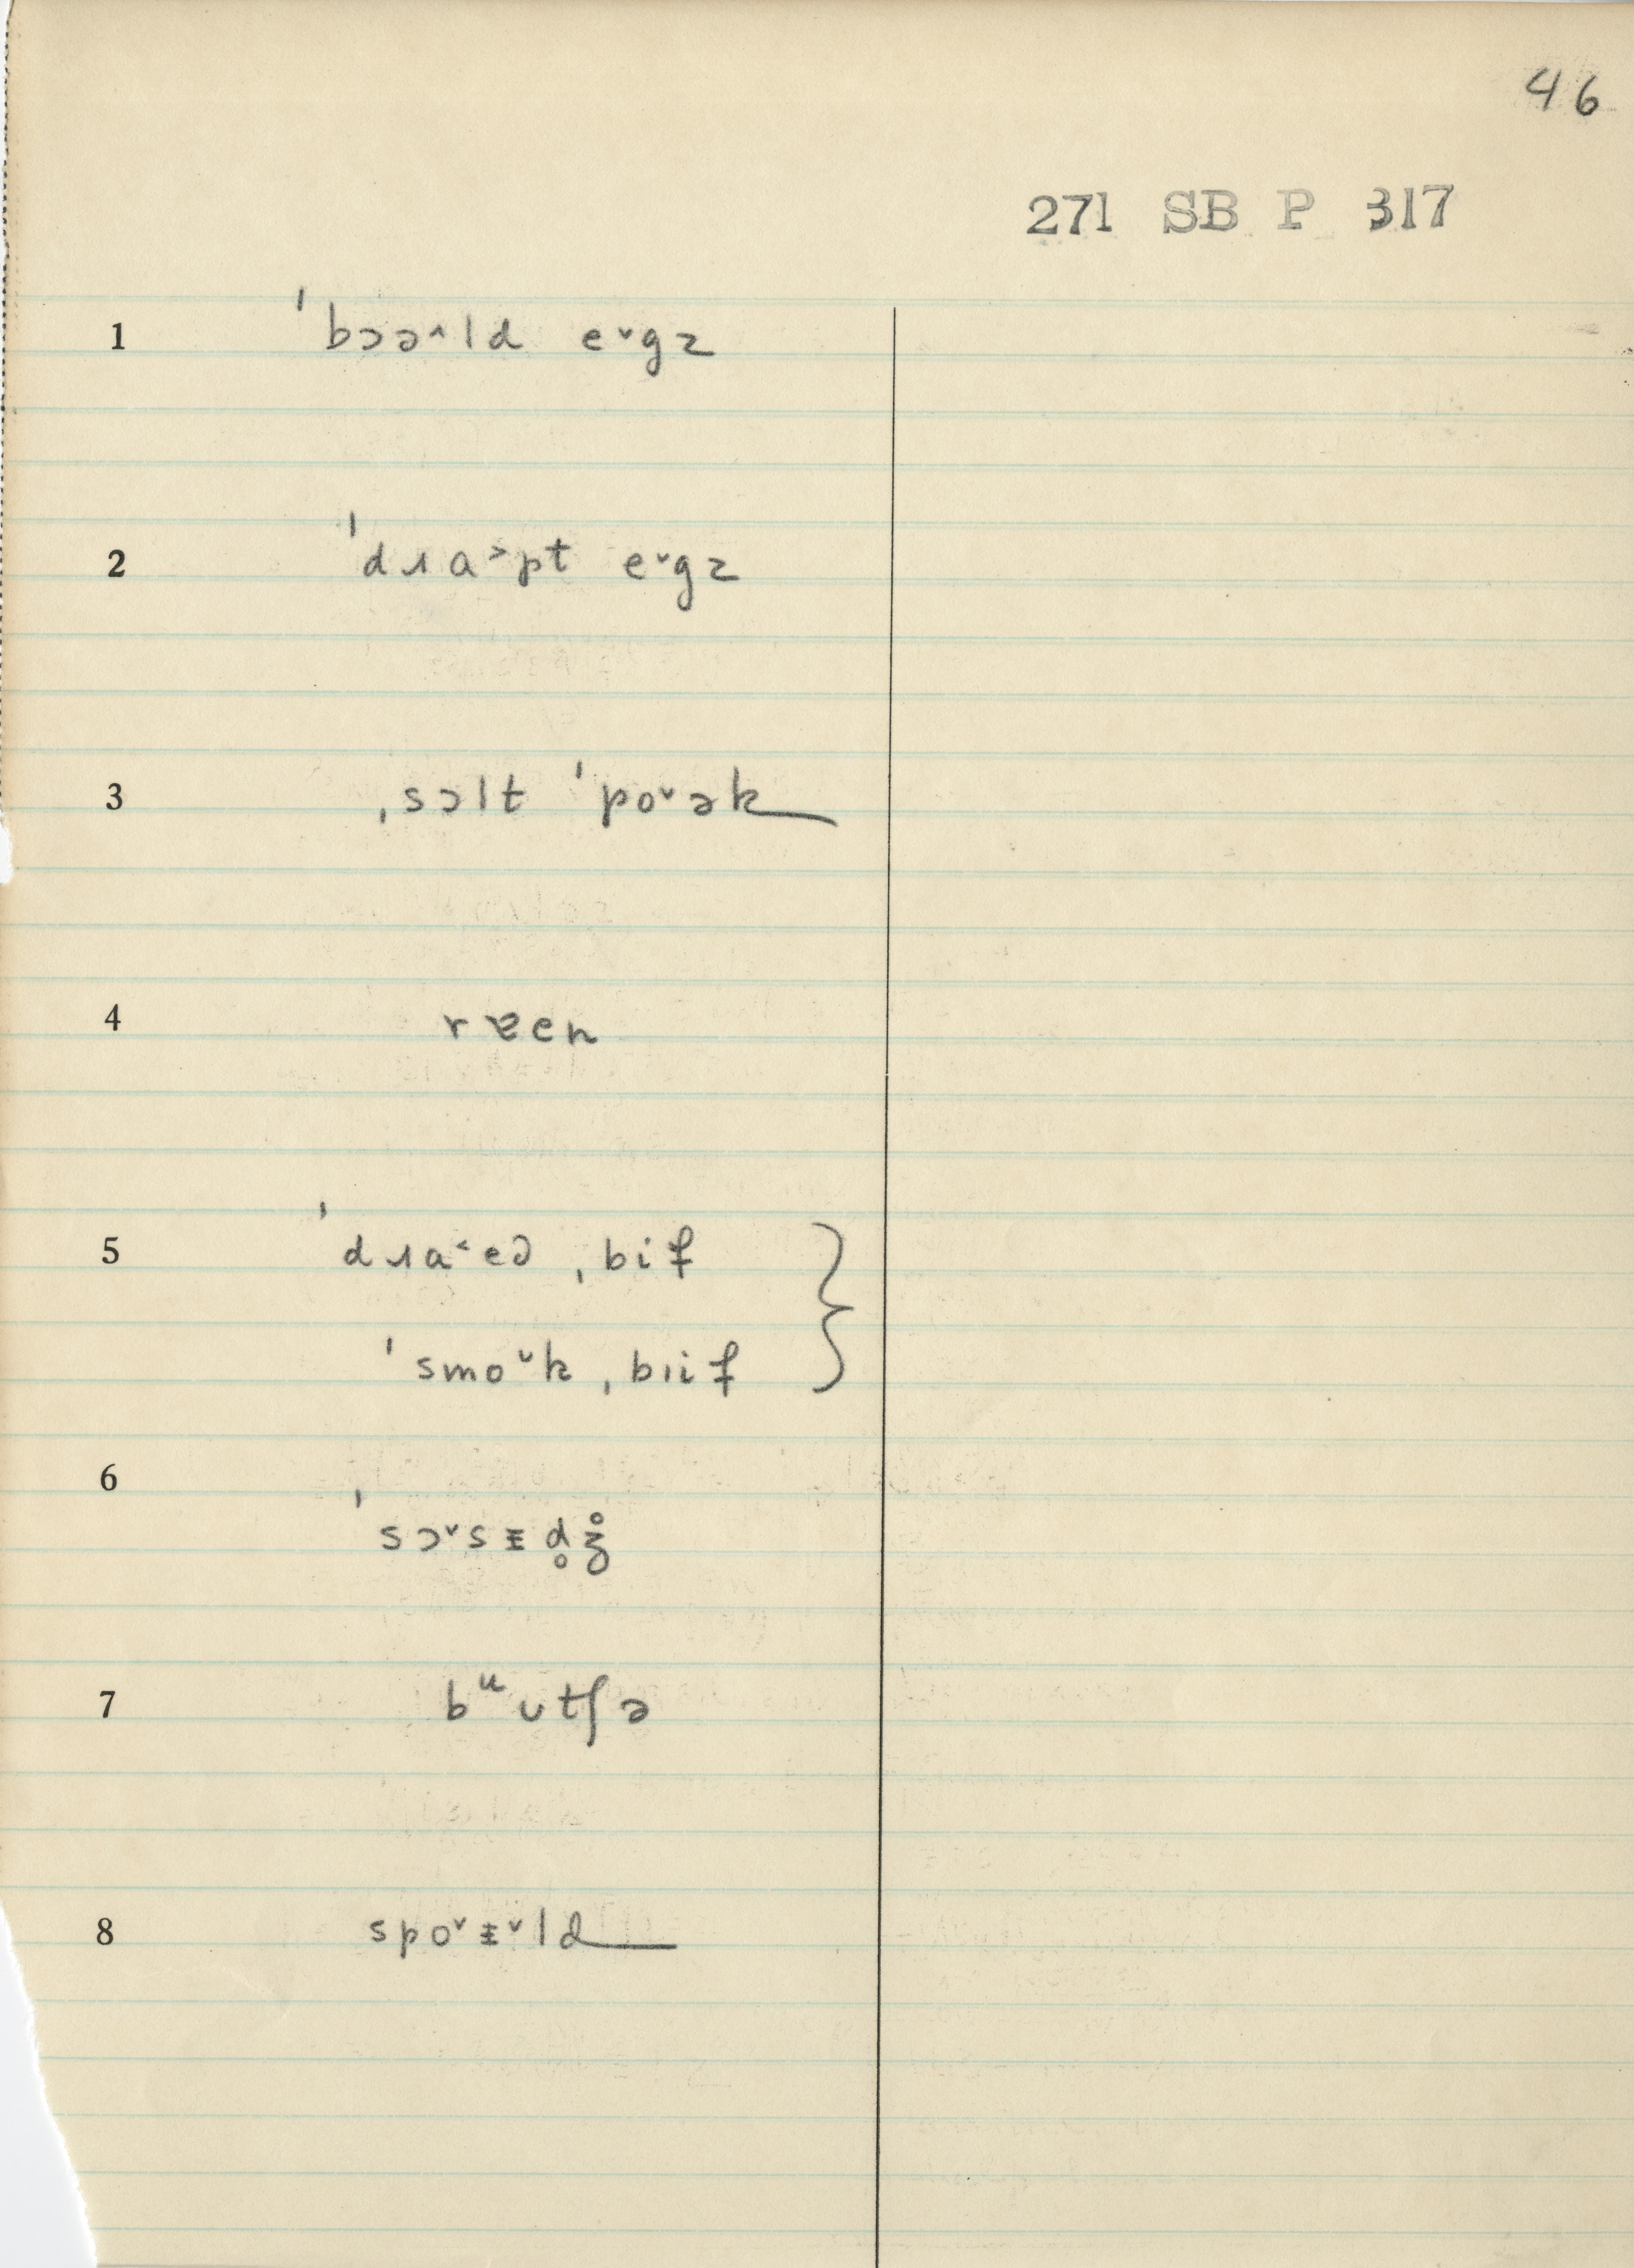 46
271 SB P 317
1 ˈbɔə˄ld e˅gz
2 ˈdɹɑ˃pt e˅gz
3 ˌsɔlt ˈpo˅ək
4 rɐen
5 ˈdɹa˂ed ˌbif
ˈsmo˅k ˌbɪif
6 ˈsɔ˅sɪ̵d̥ʒ̊
7 bᵘʊtʃə
8 spo˅ɪ̵˅ld